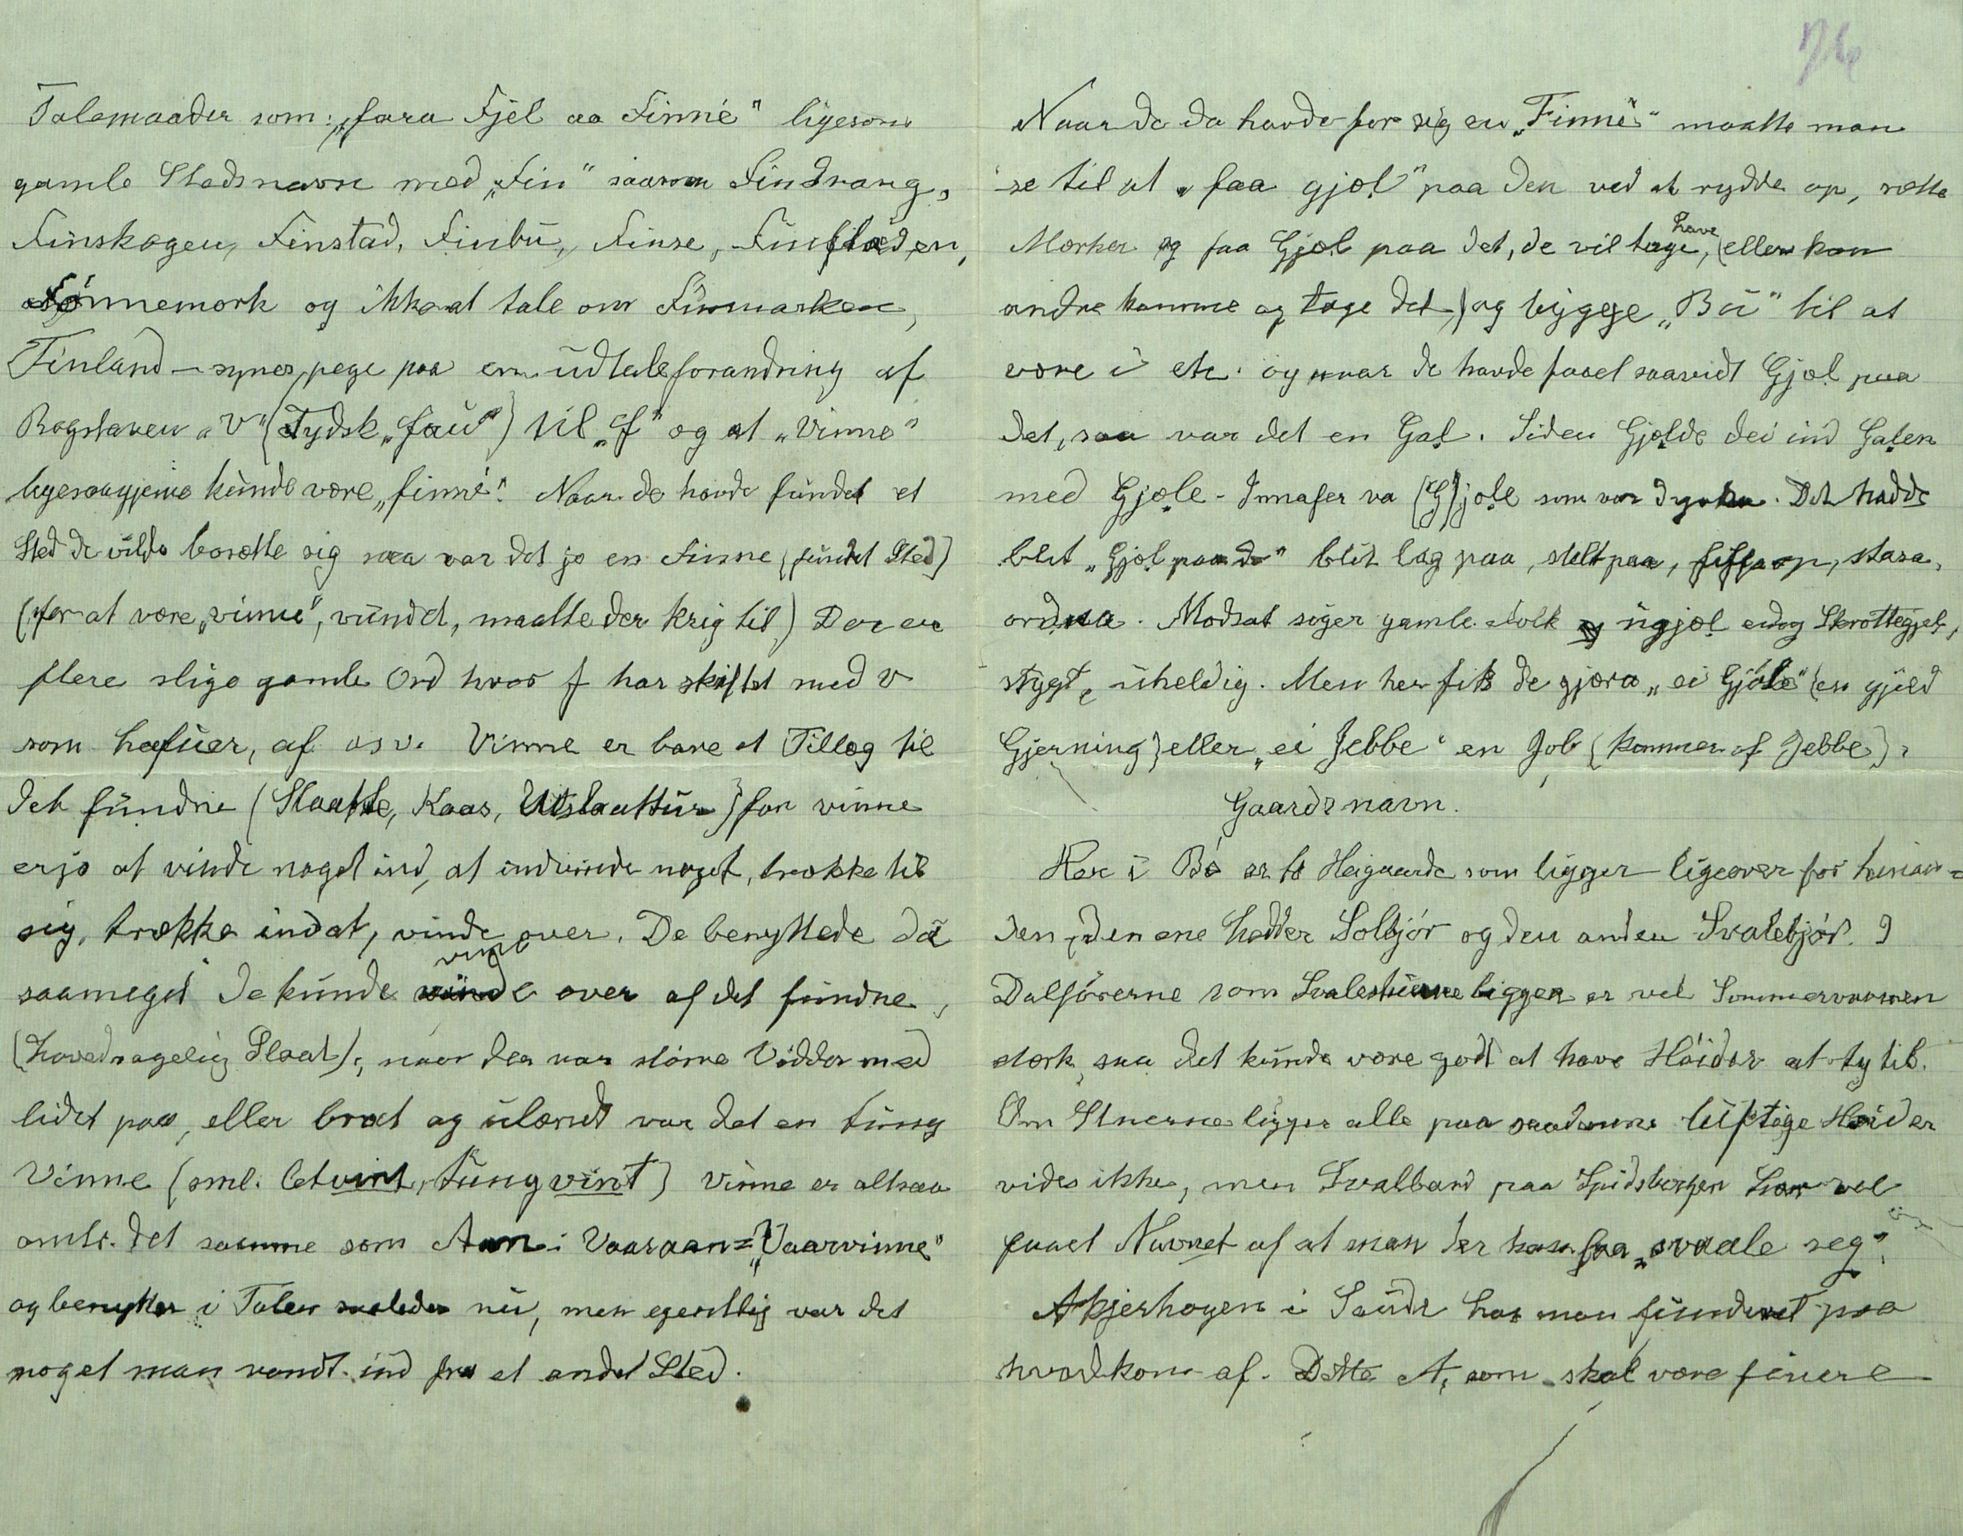 Talemaader som: „fara Fjel aa Finne" ligesom
gamle Stedsnavne med „Fin" saasom Findrang,
Finskogen, Finstad, Finbu, Finse, Finflaaden,
Finnemork og ikke at tale om Finmarken,
Finland — synes pege paa en udtaleforandring af
Bogstaven „V" (Tydsk „fau") til „f" og at „Vinne"
ligesaagjerne kunde være „finne". Naar de havde fundet et
Sted de vilde bosætte sig saa var det jo en Finne (fundet Sted)
(for at være „vinne", vundet, maatte der krig til) Der er
flere slige gamle Ord hvor f har skiftet med v
som hafuer, af osv. Vinne er bare et Tillæg til
det fundne (Slaatte, Kaas, Utslaattur) for vinne
er jo at vinde noget ind, at indvinde noget, trække til
sig, trække indat, vinde over. De benyttede da
saameget de kunde vinde over af det fundne,
(hovedsagelig Slaat); naar der var större Vidder med
lidet paa, eller brat og ulændt var det en tung
Vinne (sml. letvint, tungvint) Vinne er altsaa
omtr. det samme som Aan i Vaaraan = „Vaarvinne"
og benyttes i Talen saaledes nu, men egentlig var det
noget man vandt ind fra et andet Sted.
76
Naar de da havde for sig en „Finne" maatte man
se til at „faa gjæl" paa den ved at rydde op, sætte
Mærker og faa Gjæl paa det, de vil tage, have (ellers kan
andre komme og tage det) og bygge „Bu" til at
være i etc. og naar de havde faaet saavidt Gjæl paa
det, saa var det en Gal. Siden Gjælde dei ind Galen
med Gjæle - Innafor va (G)jole som var dyrka. Det hadde
blit „Gjæl paa de" blit lag paa, stelt paa, fiffa op, stasa,
ordna. Modsat siger gamle Folk ugjæl endog Skrottegjæl,
stygt, uheldig. Men her fik de gjæra „ei Gjöle" (en gjild
Gjerning) eller „ei Jebbe" en Job (kommer af Jebbe).
Gaardsnavn.
Her i Bö er to Heigaarde som ligger ligeover for hinan=
den, den ene hedder Solbjör og den anden Svalebjör. I
Dalförerne som Svalestuerne ligger er vel Sommervarmen
stærk, saa det kunde være godt at have Höider at ty til.
Om Stuerne ligger alle paa saadanne luftige Höider
vides ikke, men Svalbard paa Spidsbergen har vel
faaet Navnet af at man der kan faa „svale seg".
Akjerhogen i Saude har man funderet paa
hvad kom af. Dette A, som skal være finere